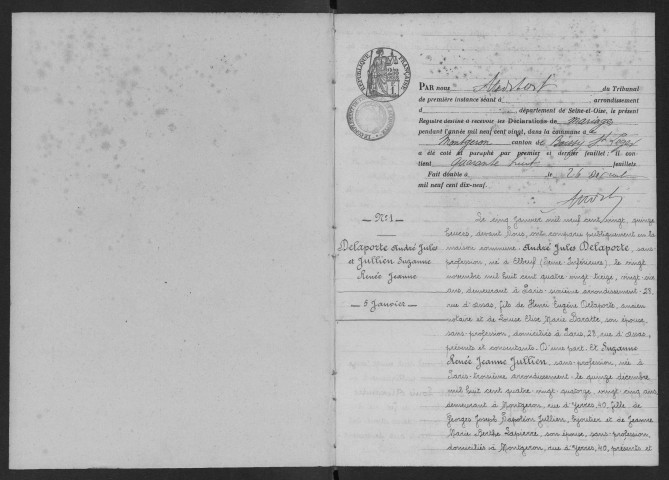 RÉPUBLIQUE FRANÇAISE
PAR nous du Tribunal
de première instance séant à arrondissement
d département de Seine-et-Oise, le présent
Registre destiné à recevoir les Déclarations de mariage
pendant l'année mil neuf cent vingt, dans la commune de
Montgeron canton de Boissy St Léger
a été coté et paraphé par premier et dernier feuillet; il con-
tient quarante huit feuillets.
Fait double à le 26 Décembre
mil neuf cent dix-neuf.
N° 1
Delaporte André Jules
et Jullien Suzanne
Renée Jeanne
5 Janvier
Le cinq Janvier mil neuf cent vingt, quinze
heures, devant Nous, ont comparu publiquement en la
maison commune: André Jules Delaporte, sans
profession, né à Elbeuf (Seine Inférieure), le vingt
novembre mil huit cent quatre-vingt treize, vingt-six
ans, demeurant à Paris sixième arrondissement, 28,
rue d'Assas, fils de Henri Eugène Delaporte, ancien
notaire et de Louise Elise Marie son épouse,
sans profession, domiciliés à Paris, 28, rue d'Assas,
présents et consentants. D'une part. Et Suzanne
Renée Jeanne Jullien, sans profession, née à
Paris troisième arrondissement le quinze décembre
mil huit cent quatre-vingt-quatorze, vingt-cinq ans,
demeurant à Montgeron, rue d'Yerres, 40, fille de
Georges Joseph Napoléon Jullien, bijoutier et de Jeanne
Marie Berthe Lapierre, son épouse, sans profession,
domiciliés à Montgeron, rue d'Yerres, 40, présents et